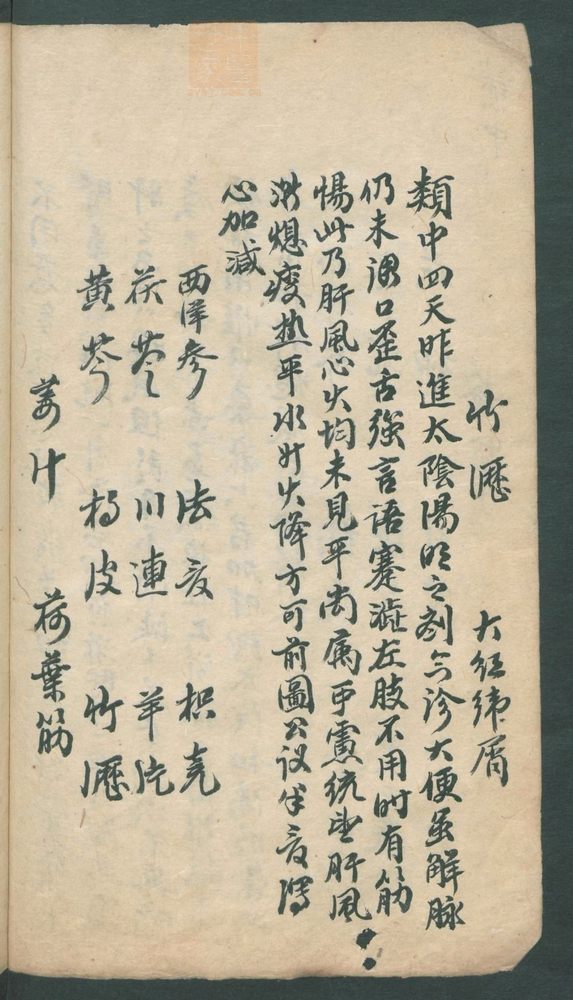 竹瀝 大红绋屑
類中四天昨進太陰陽明之剂今诊大便虽解脉
仍未調口歪舌强言語蹇澁左肢不用时有筋
惕此乃肝風心火均未見平尚属可慮统望肝風
渐熄痰热平水升火降方可前圖公议半夏瀉
心加減
西洋參 法夏 枳壳
茯苓 川連 羊片
黄芩 橘皮 竹瀝
姜汁 荷葉筋